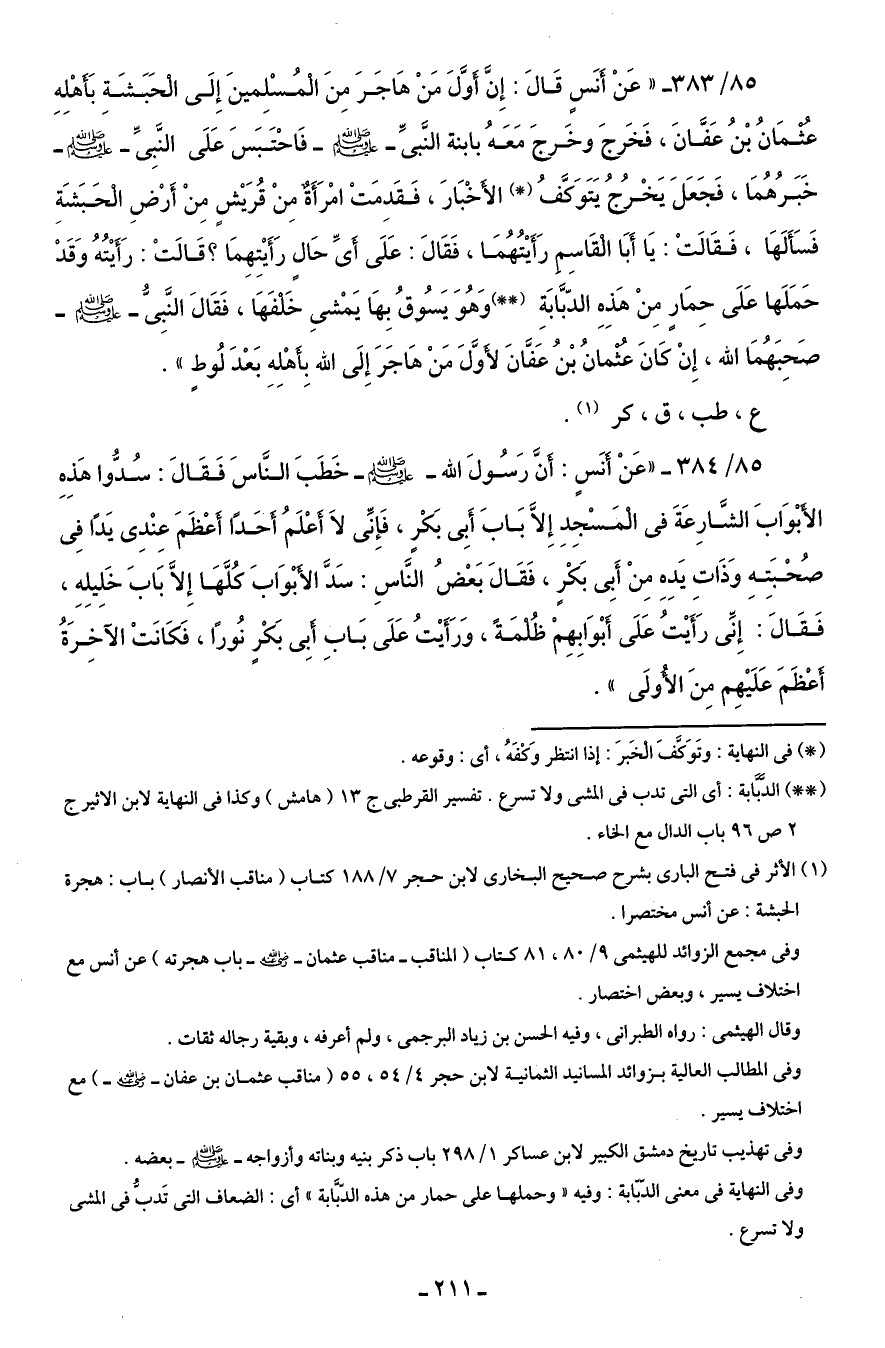 ٨٥/ ٣٨٣ـ « عَنْ أَنَسٍ قَالَ : إِنَّ أَوَّلَ مَنْ هَاجَرَ مِنَ الْمُسْلِمينَ إِلَى الْحَبَشَةِ بَأَهْلِهِ
عُثْمَانُ بْنُ عَفَّانَ ، فَخَرجَ وخَرجَ مَعَهُ بابنة النَّبِىِّ ـ ﷺ ـ فَاحْتَبَسَ عَلَى النَّبِىِّ ـ ﷺ ـ
خَبَرُهُمَا ، فَجَعَلَ يَخْرُجُ يُتَوَكَّفُ (*) الأَخْبَارَ ، فَقَدمَتْ امْرَأَةٌ مِنْ قُرَيْشٍ مِنْ أَرْضِ الْحَبَشَةِ
فَسَأَلَهَا ، فَقَالَتْ : يَا أَبَا الْقَاسِمِ رَأَيْتُهُمَا ، فَقَالَ : عَلَى أَىِّ حَالٍ رَأَيْتِهِمَا ؟ قَالَتْ : رَأَيْتُهُ وَقَدْ
حَمَلَها عَلَى حِمَارٍ مِنْ هَذِهِ الدَّبَّابَةِ (**) وَهُوَ يَسُوقُ بِهَا يَمْشِى خَلْفَهَا ، فَقَالَ النَّبِىُّ ـ ﷺ ـ
صَحِبَهُمَا الله ، إِنْ كَانَ عُثْمانُ بْنُ عَفَّانَ لأَوَّلَ مَنْ هَاجَرَ إِلَى الله بِأَهْلِهِ بَعْدَ لُوطٍ » .
ع ، طب ، ق ، كر (١) .
٨٥/ ٣٨٤ ـ «عَنْ أَنَسٍ : أَنَّ رَسُولَ الله ـ ﷺ ـ خَطَبَ النَّاسَ فَقَالَ : سُدُّوا هَذِهِ
الأَبْوَابَ الشَّارِعَةَ فى الْمَسْجِدِ إِلاَّ بَابَ أَبِى بَكْرٍ ، فَإِنِّى لاَ أَعْلَمُ أَحَدًا أَعْظَمَ عِنْدِى يَدًا فِى
صُحْبَتِهِ وَذَاتِ يَدِهِ مِنْ أَبِى بَكْرٍ ، فَقَالَ بَعْضُ النَّاسِ : سَدَّ الأَبْوَابَ كُلَّهَا إِلاَّ بَابَ خَلِيلِهِ ،
فَقَالَ : إِنِّى رَأَيْتُ عَلَى أَبْوَابِهِمْ ظُلْمَةً ، وَرَأَيْتُ عَلَى بَابِ أَبِى بَكْرٍ نُورًا ، فَكَانَتْ الآخِرَةُ
أَعْظَمَ عَلَيْهِم مِنَ الأُولَى » .
(*) فى النهاية : وتَوَكَّفَ الْخَبرَ : إذا انتظر وَكْفَهُ ، أى : وقوعه .
(**) الدَّبَّابة : أى التى تدب فى المشى ولا تسرع . تفسير القرطبى ج ١٣ ( هامش ) وكذا فى النهاية لابن الاثير ج
٢ ص ٩٦ باب الدال مع الخاء .
(١) الأثر فى فتح البارى بشرح صحيح البخارى لابن حجر ٧/ ١٨٨ كتاب ( مناقب الأنصار ) باب : هجرة
الحبشة : عن أنس مختصرا .
وفى مجمع الزوائد للهيثمى ٩/ ٨٠ ، ٨١ كتاب ( المناقب ـ مناقب عثمان ـ رضي الله عنه ـ باب هجرته ) عن أنس مع
اختلاف يسير ، وبعض اختصار .
وقال الهيثمى : رواه الطبرانى ، وفيه الحسن بن زياد البرجمى ، ولم أعرفه ، وبقية رجاله ثقات .
وفى المطالب العالية بزوائد المسانيد الثمانية لابن حجر ٤/ ٥٤ ، ٥٥ ( مناقب عثمان بن عفان ـ رضي الله عنه ـ ) مع
اختلاف يسير .
وفى تهذيب تاريخ دمشق الكبير لابن عساكر ١/ ٢٩٨ باب ذكر بنيه وبناته وأزواجه ـ ﷺ ـ بعضه .
وفى النهاية فى معنى الدبّابة : وفيه « وحملها على حمار من هذه الدبَّابة » أى : الضعاف التى تَدبُّ فى المشى
ولا تسرع .
ـ ٢١١ ـ